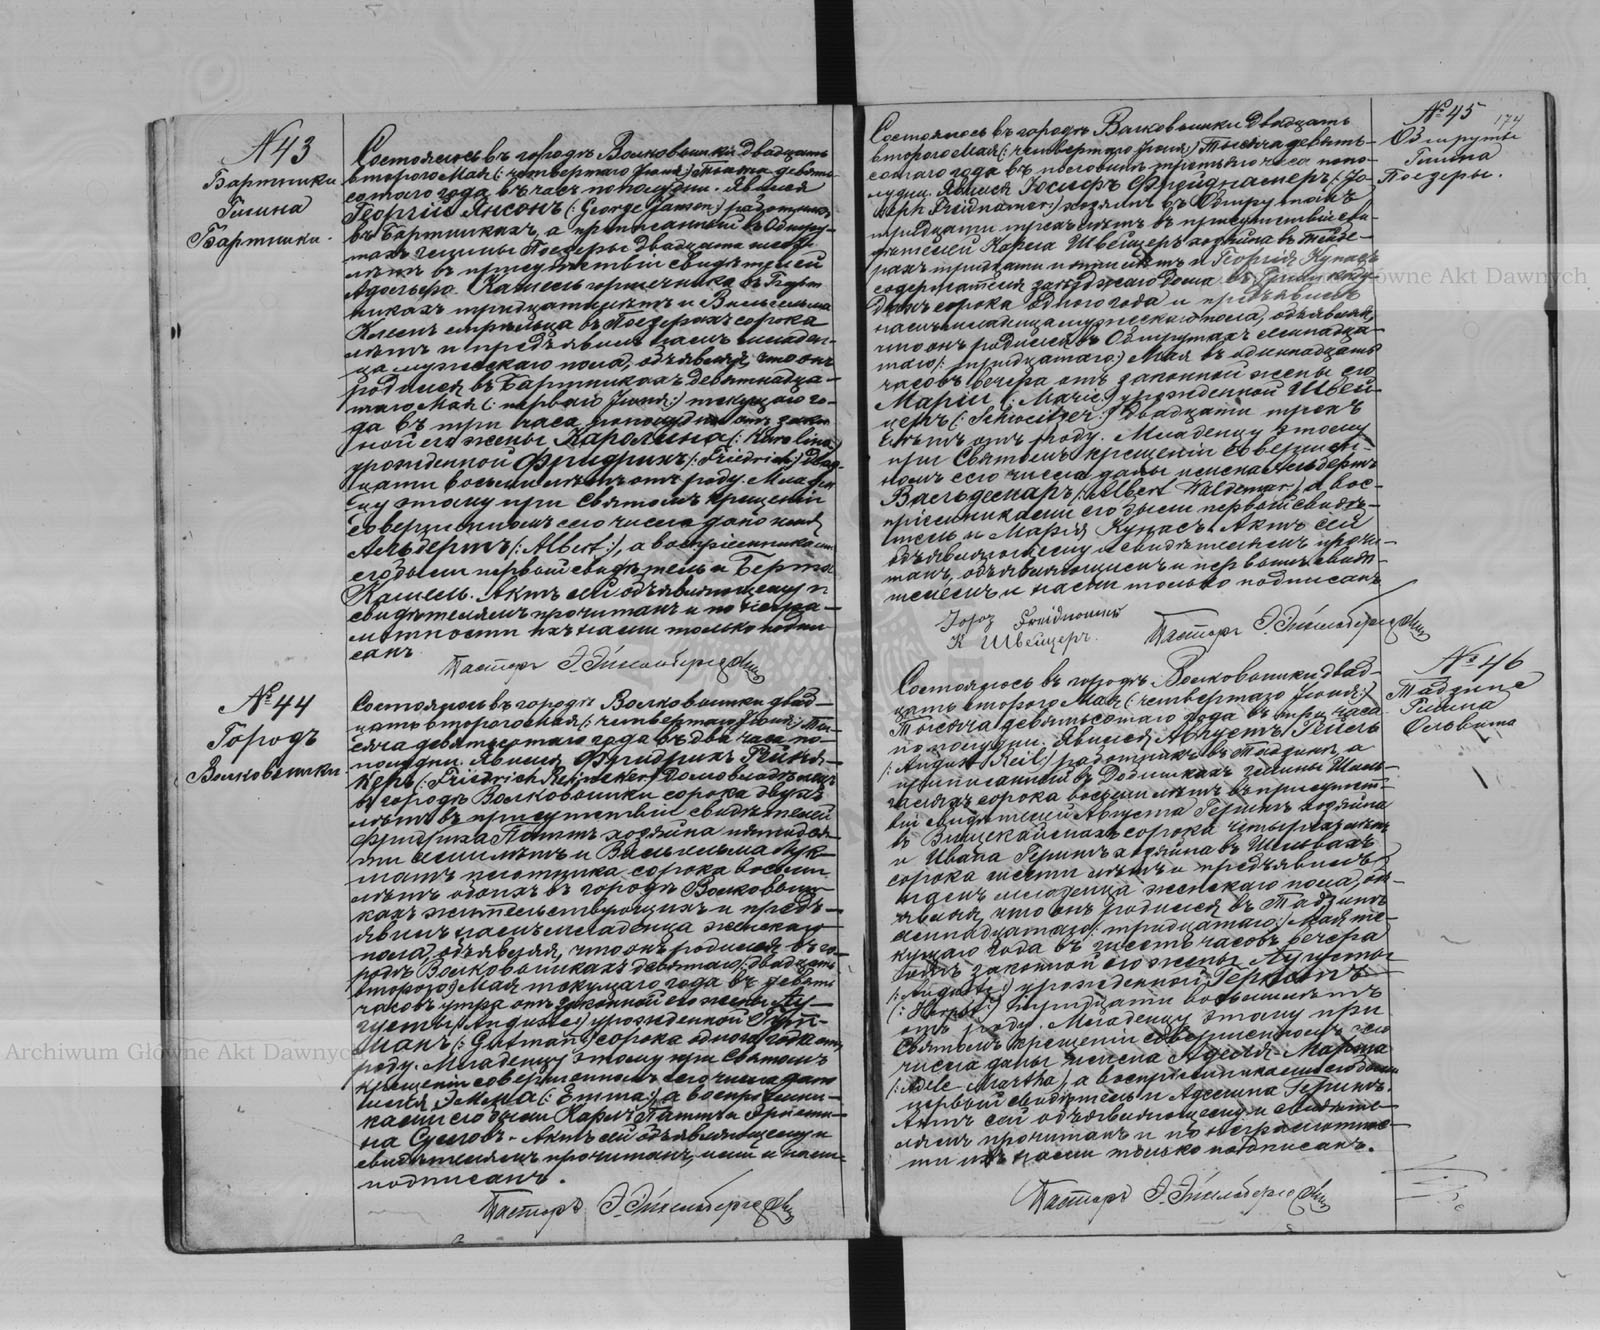 N 43
Бартники
Гмина
Бартники.
Состоялось въ городѣ Волковышки двадцать
втораго Мая (: четвертаго Іюня:) тысяча девять-
сотаго года въ часъ пополудни. Явился
Георгій Янсонъ (: George Janson:) работникъ
въ Бартникахъ, а приписанный въ Обшру-
тахъ гмины Поезеры двадцати шести
лѣтъ въ присутствіи свидѣтелей
Адольфа Кашель горшечника въ Барт
никахъ тридцати лѣтъ и Вильгельма
Клеин стрѣльца въ Поезерахъ сорока
лѣтъ и предъявилъ намъ младен-
ца мужескаго пола, объявляя, что онъ
родился въ Бартникахъ девятнадца-
таго Мая (: перваго Іюня:) текущаго го-
да въ три часа пополудни отъ закон
ной его жены Каролина (: Karolina:)
урожденной Фридрихъ (: Friedrich:) двад-
цати восьми лѣтъ отъ роду. Младен
цу этому при Святомъ крещеніи
совершенномъ сего числа дано имя
Альбертъ (: Albert:), а воспріемниками
его были первый свидѣтель и Берта
Кашель. Актъ сей объявляющему и
свидѣтелямъ прочитанъ и по негра-
мотности ихъ нами только подпи
санъ.
Пасторъ
N 44
Городъ
Волковышки
Состоялось въ городѣ Волковышки двад-
цать втораго Мая (: четвертаго Іюня:) ты-
сяча девятьсотаго года въ два часа по-
полудни. Явился Фридрихъ Рейня-
керъ (: Friedrich Reineker:) домовладѣлецъ
въ городѣ Волковышки сорока двухъ
лѣтъ въ присутствіи свидѣтелей
Фридриха Паттъ хозяина пятидеся-
ти семи лѣтъ и Вильгельма
плотника сорока восьми
лѣтъ обоихъ въ городѣ Волковыш-
кахъ жительствующихъ и предъ-
явилъ намъ младенца женскаго
пола, объявляя, что онъ родился въ го-
родѣ Волковышкахъ девятаго (: двадцать
втораго:) Мая текущаго года въ девять
часовъ утра отъ законной его жены Ав-
густы (: Auguste:) урожденной Гут-
манъ (: Gutman:) сорока одного года отъ
роду. Младенцу этому при Святомъ
крещеніи совершенномъ сего числа дано
имя Эмма (: Emma:) а воспріемни-
ками его были Карлъ Паттъ и Христи-
на. Актъ сей объявляющему и
свидѣтелямъ прочитанъ, ими и нами
подписанъ.
Пасторъ
№ 45
174
Обшруты
Гмина
Поезеры.
Состоялось въ городѣ Волковышки двадцать
втораго Мая (: четвертаго Іюня:) тысяча девять-
сотаго года въ половинѣ третьяго часа попо-
лудни. Явился Іосифъ Фрейднамеръ (: Jo-
seph Freidnamer:) хозяинъ въ Обшрутахъ
тридцати трехъ лѣтъ въ присутствіи сви-
дѣтелей Карла Швейцеръ хозяина въ
тридцати пяти лѣтъ и Георгія Кунасъ
содержателя заѣзжаго дома въ
сорока одного года и предъявилъ
намъ младенца мужескаго пола, объявляя,
что онъ родился въ Обшрутахъ семнадца-
таго (: тридцатаго:) Мая въ одиннадцать
часовъ вечера отъ законной жены его
Маріи (: Marie:) урожденной Швей-
церъ (: Schweitzer:) двадцати трехъ
лѣтъ отъ роду. Младенцу этому
при Святомъ крещеніи совершен-
номъ сего числа даны имена Альбертъ
Вальдемаръ (: Albert Waldemar:) а вос-
пріемниками его были первый свидѣ-
тель и Марія Кунасъ. Актъ сей
объявляющему и свидѣтелямъ прочи-
танъ, объявляющимъ и первымъ свидѣ-
телемъ и нами только подписанъ
К Швейцеръ.
Пасторъ
№ 46
Тадзине
Гмина
Ольвита
Состоялось въ городѣ Волковышки двад-
цать втораго Мая (: четвертаго Іюня:)
тысяча девятьсотаго года въ три часа
пополудни. Явился Августъ Рейль
(: August Reil:) работникъ въ Тадзине, а
приписанный въ гмины
сорока восьми лѣтъ въ присутст-
віи свидѣтелей Августа хозяина
въ сорока четырехъ лѣтъ
и Ивана хозяина въ
сорока шести лѣтъ и предъявилъ
намъ младенца женскаго пола, объ-
являя, что онъ родился въ Тадзине
семнадцатаго (: тридцатаго:) Мая те-
кущаго года въ шесть часовъ вечера
отъ законной его жены Августы
(: Auguste:) урожденной
тридцати восьми лѣтъ
отъ роду. Младенцу этому при
Святомъ крещеніи совершенномъ сего
числа даны имена Аделя Марта
(: Adele Martha:) а воспріемниками его были
первый свидѣтель и
Актъ сей объявляющему и свидѣте-
лямъ прочитанъ и по неграмотнос-
ти ихъ нами только подписанъ.
Пасторъ
Archiwum Główne Akt Dawnych
Archiwum Główne Akt Dawnych